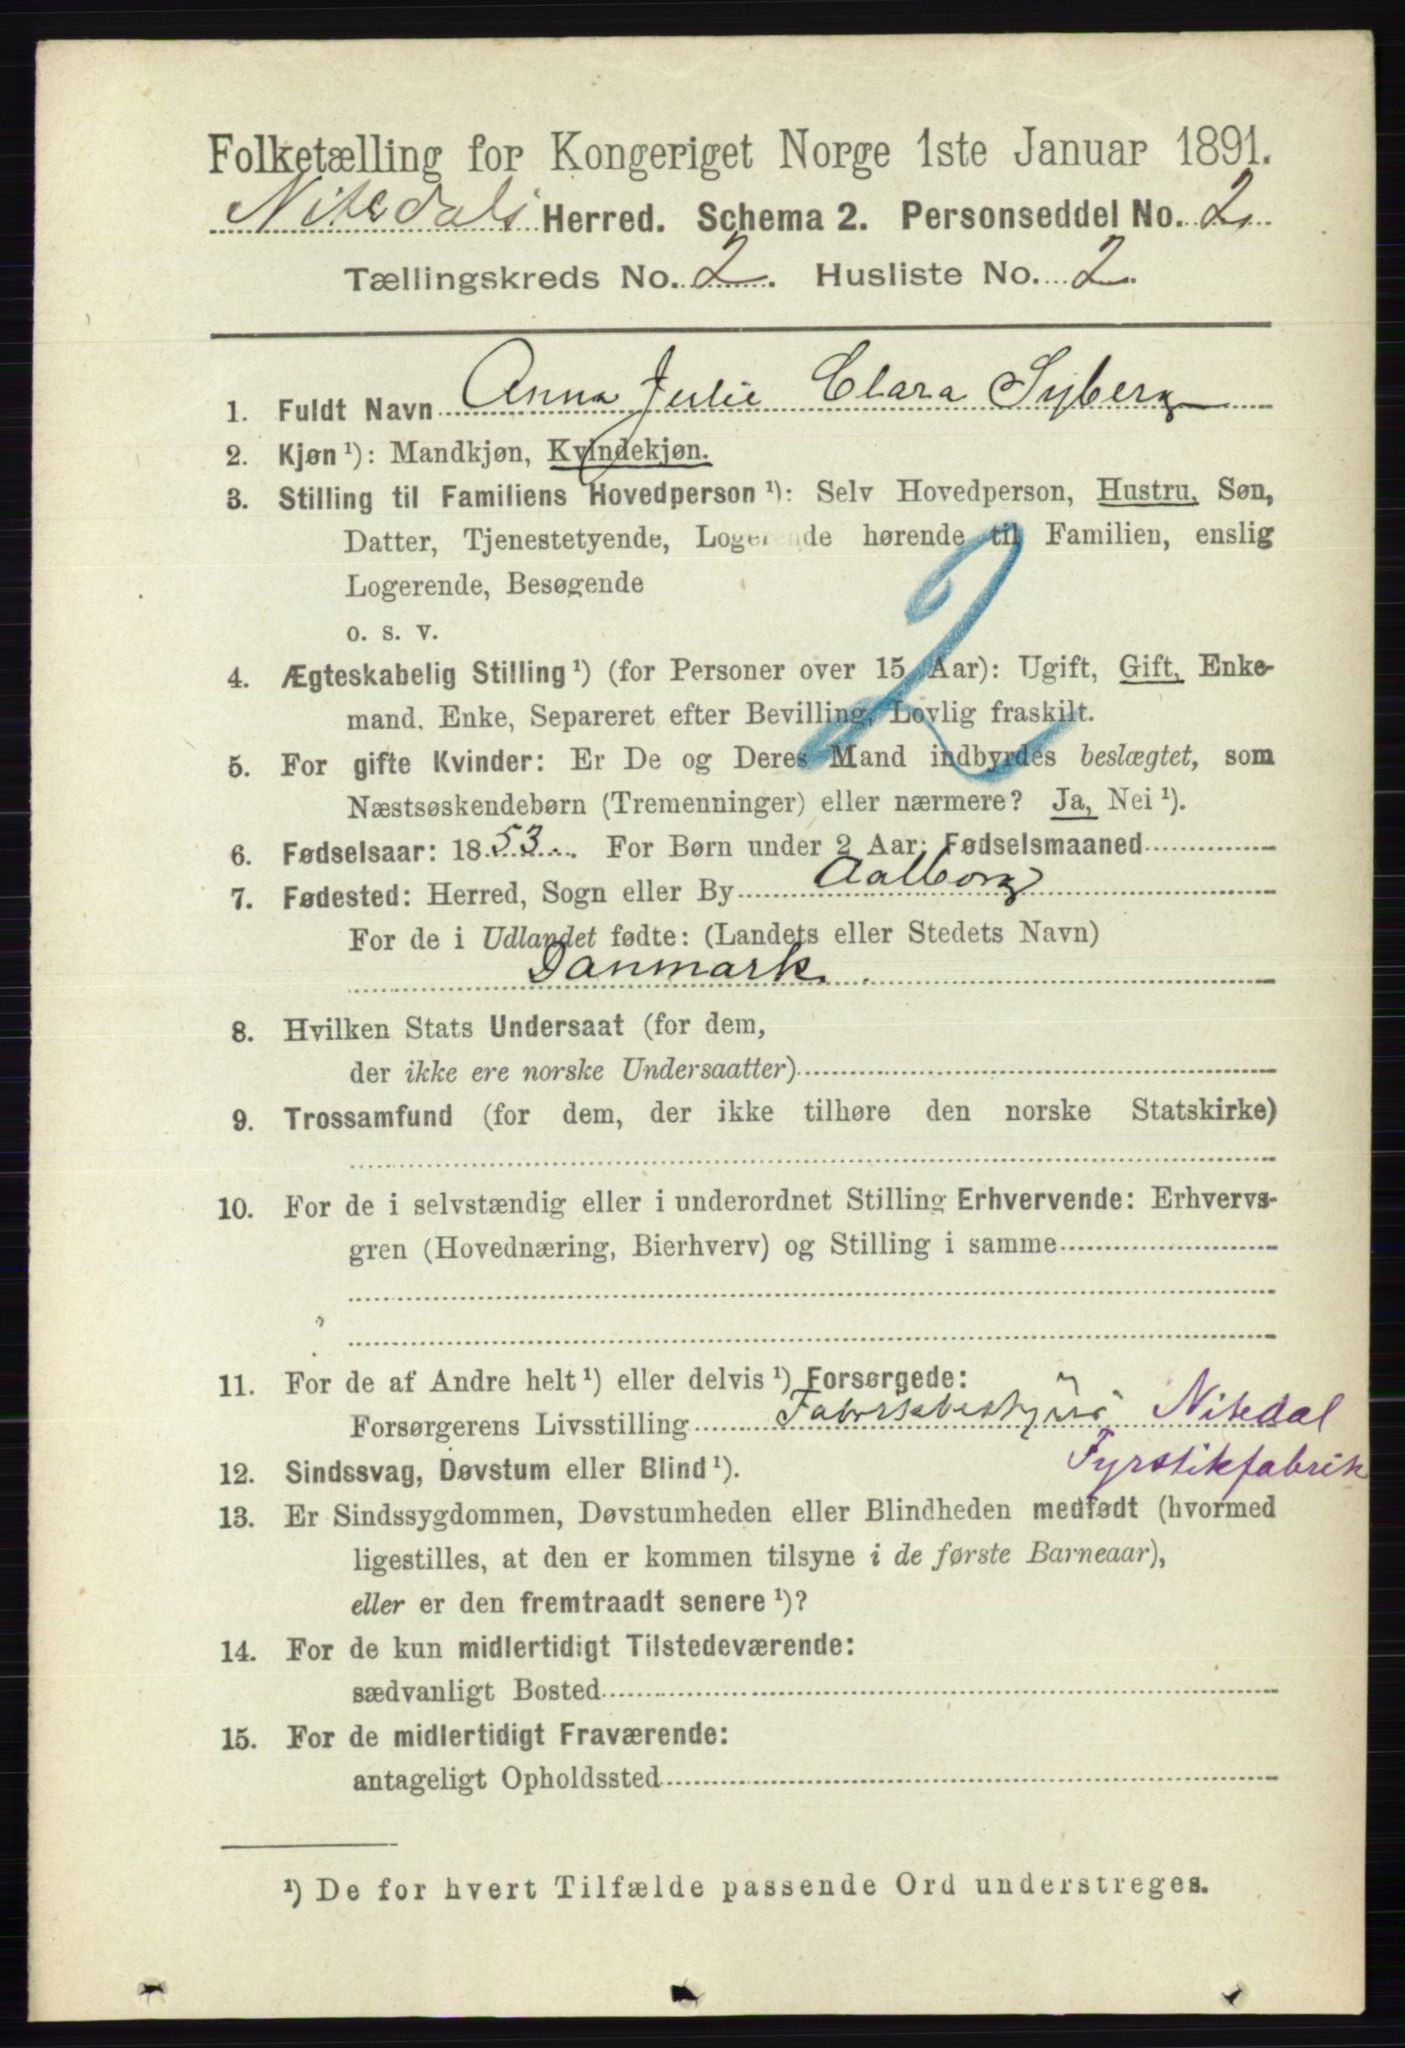 Folketælling for Kongeriget Norge 1ste Januar 1891.
Nitedals Herred. Schema 2. Personseddel No. 2
Tællingskreds No. 2. Husliste No. 2.
1. Fuldt Navn Anna Julie Clara Syberg
2. Kjøn ¹): Mandkjøn, Kvindekjøn.
3. Stilling til Familiens Hovedperson ¹): Selv Hovedperson, Hustru, Søn,
Datter, Tjenestetyende, Logerende hørende til Familien, enslig
Logerende, Besøgende
o. s. v.
2
4. Ægteskabelig Stilling ¹) (for Personer over 15 Aar): Ugift, Gift, Enke-
mand, Enke, Separeret efter Bevilling, Lovlig fraskilt.
5. For gifte Kvinder: Er De og Deres Mand indbyrdes beslægtet, som
Næstsøskendebørn (Tremenninger) eller nærmere? Ja, Nei ¹).
6. Fødselsaar: 1853. For Børn under 2 Aar: Fødselsmaaned
7. Fødested: Herred, Sogn eller By Aalborg
For de i Udlandet fødte: (Landets eller Stedets Navn)
Danmark.
8. Hvilken Stats Undersaat (for dem,
der ikke ere norske Undersaatter)
9. Trossamfund (for dem, der ikke tilhøre den norske Statskirke)
10. For de i selvstændig eller i underordnet Stilling Erhvervende: Erhvervs-
gren (Hovednæring, Bierhverv) og Stilling i samme
11. For de af Andre helt ¹) eller delvis ¹) Forsørgede:
Forsørgerens Livsstilling Nitedal
Fyrstikfabrik
12. Sindssvag, Døvstum eller Blind ¹).
13. Er Sindssygdommen, Døvstumheden eller Blindheden medfødt (hvormed
ligestilles, at den er kommen tilsyne i de første Barneaar),
eller er den fremtraadt senere ¹)?
14. For de kun midlertidigt Tilstedeværende:
sædvanligt Bosted
15. For de midlertidigt Fraværende:
antageligt Opholdssted
¹) De for hvert Tilfælde passende Ord understreges.